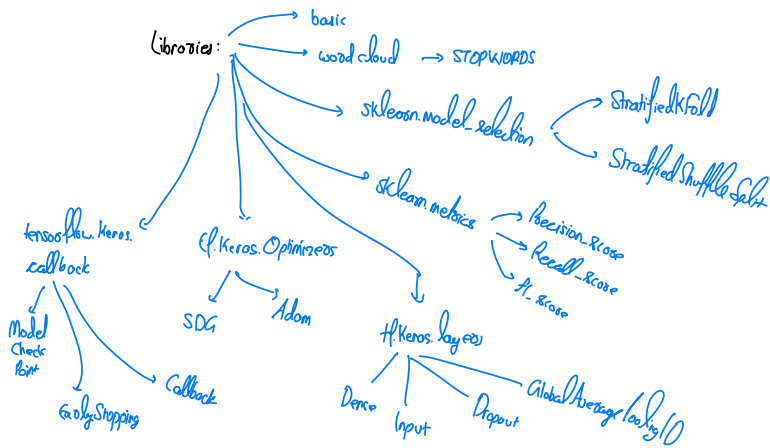 basic
Libraries:
wordcloud → STOPWORDS
sklearn.model_selection
StratifiedKFold
StratifiedShuffleSplit
sklearn.metrics
Precision_score
Recall_score
f1_score
tensorflow.keras.
callback
Model
Check
Point
EarlyStopping
Callback
tf.Keras.Optimizers
SDG
Adam
tf.Keras.layers
Dense
Input
Dropout
GlobalAveragePooling1D